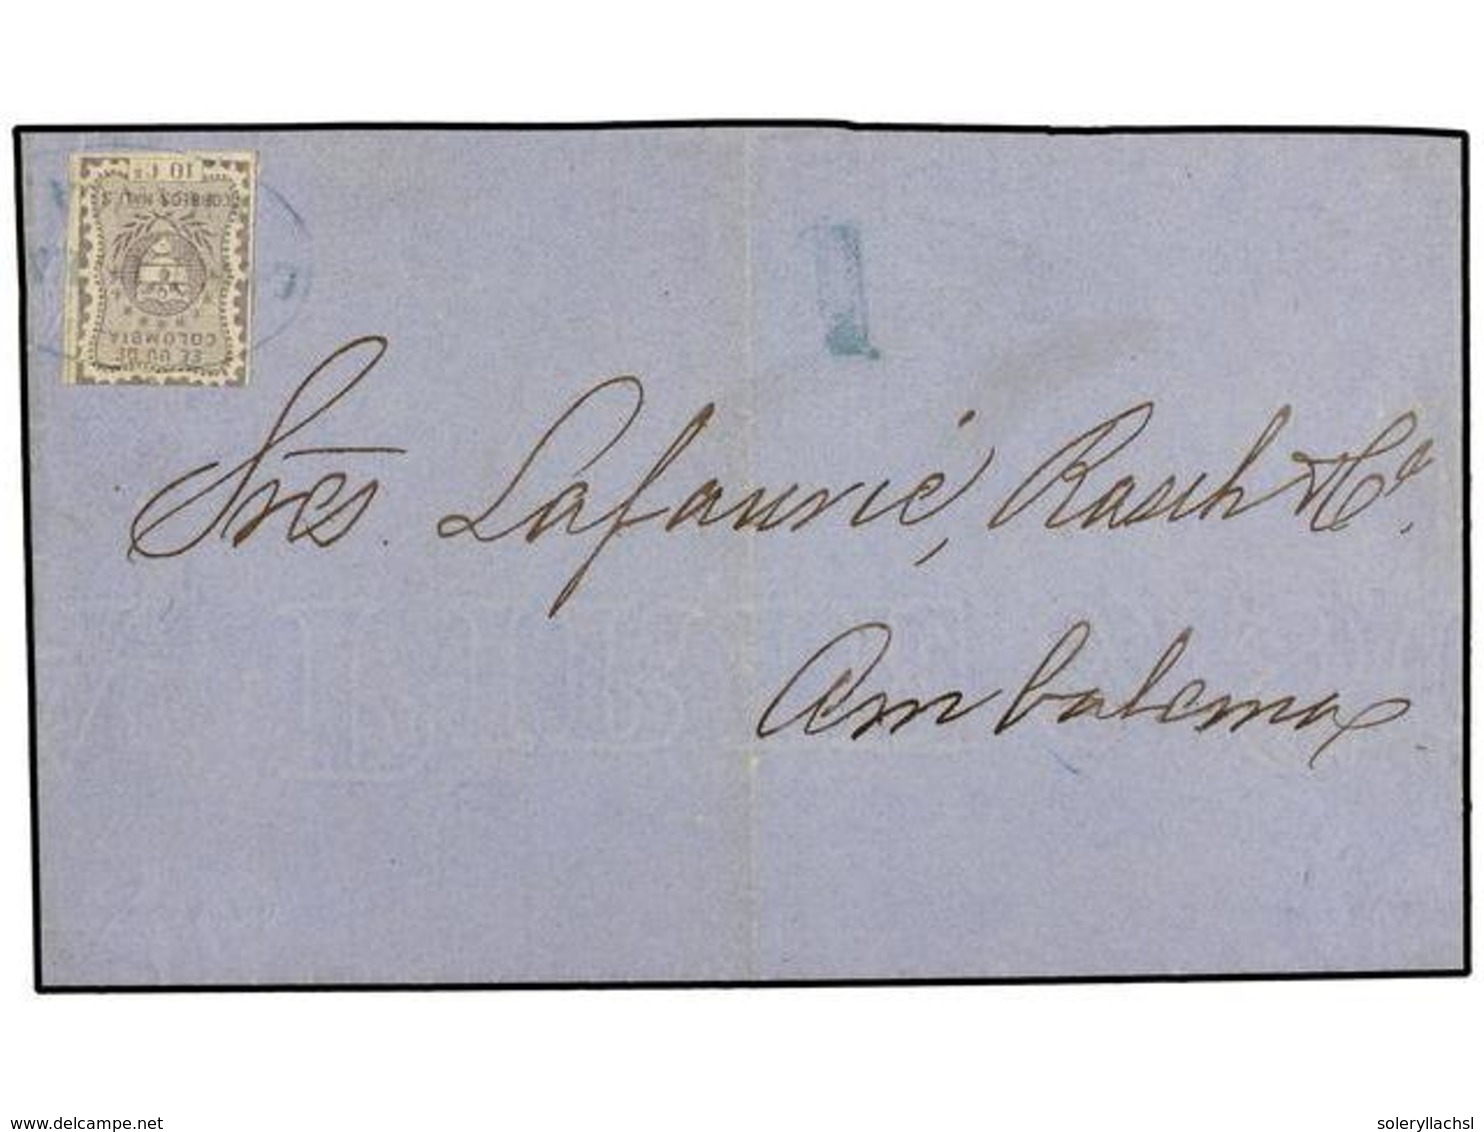 10 Cs
CORREOS NAL'S
EE UU DE
COLOMBIA
1
Srēs. Lafaurié, Rasch & Cª.
Ambalema
www.delcampe.net
soleryllachsl